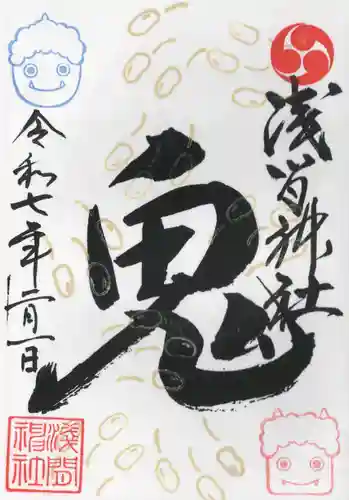 浅間神社
鬼
令和七年二月一日
淺間
神社